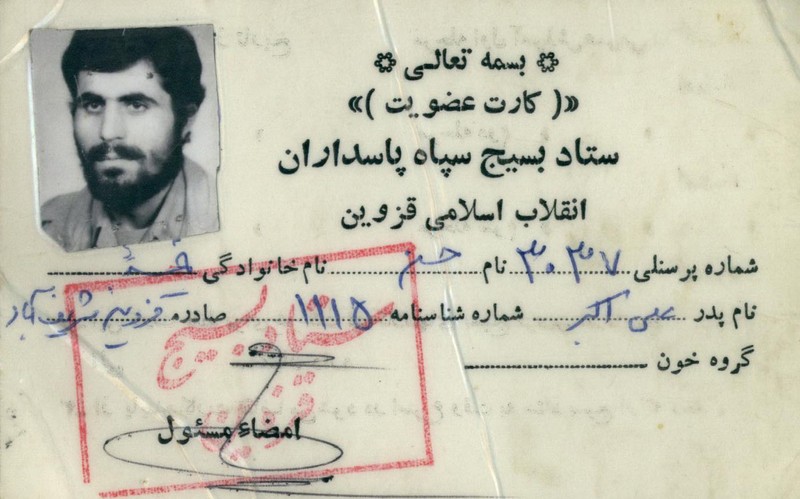 بسمه تعالی
«( کارت عضویت )»
ستاد بسیج سپاه پاسداران
انقلاب اسلامی قزوین
شماره پرسنلی ۳۰۳۷ نام حسن نام خانوادگی
نام پدر علی اکبر شماره شناسنامه ۱۱۱۵ صادره قزوین شریف آباد
گروه خون
ستاد بسیج
قزوین
امضاء مسئول